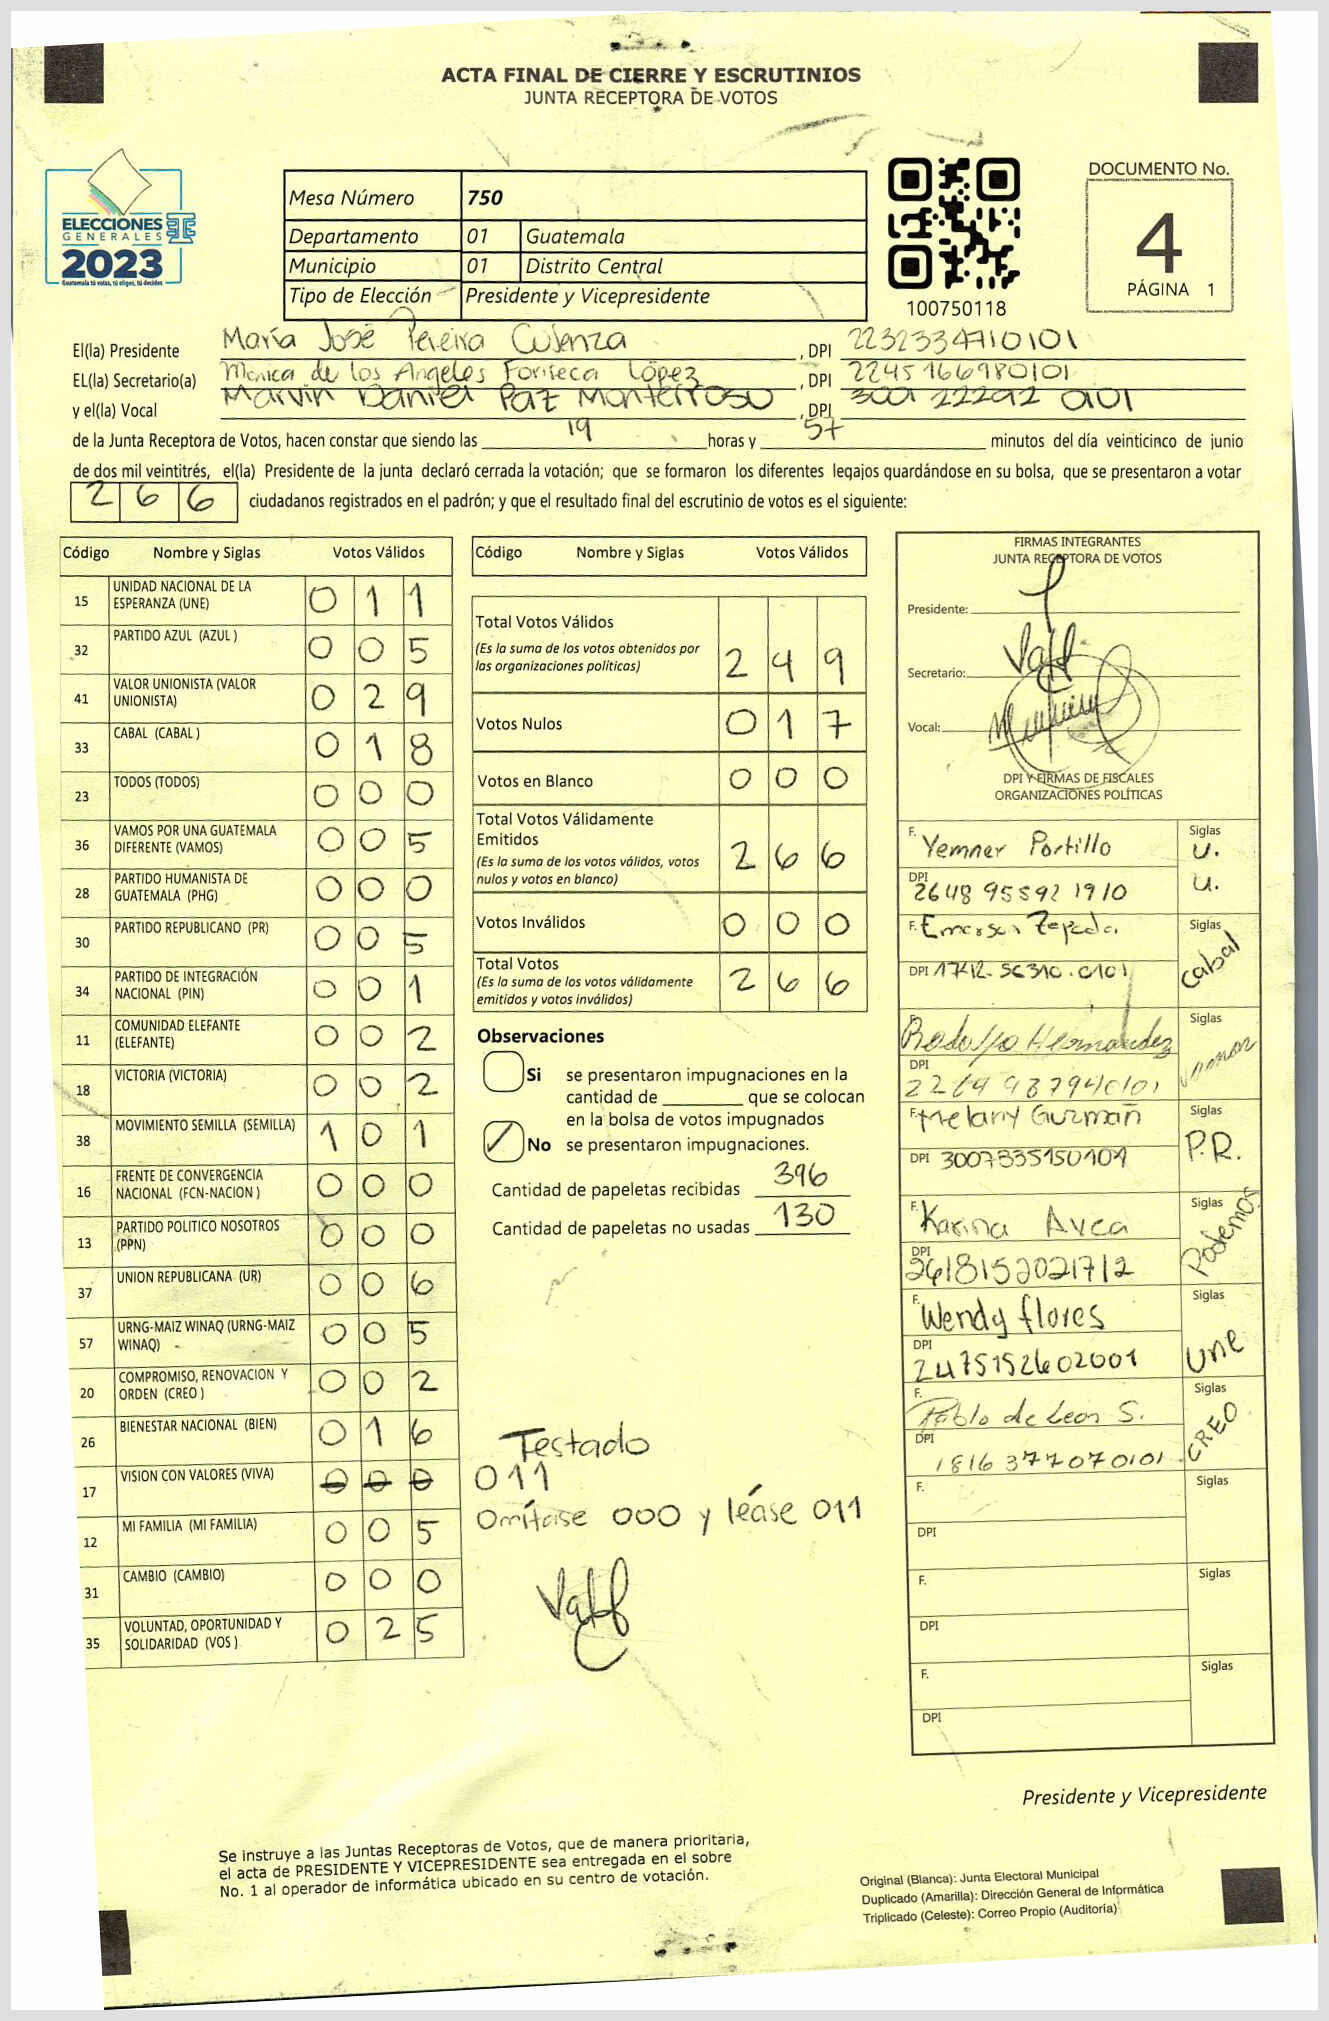 ACTA FINAL DE CIERRE Y ESCRUTINIOS
JUNTA RECEPTORA DE VOTOS
ELECCIONES
GENERALES
2023
Guatemala tú votas, tú eliges, tú decides
Mesa Número 750
Departamento 01 Guatemala
Municipio 01 Distrito Central
Tipo de Elección Presidente y Vicepresidente
100750118
DOCUMENTO No.
4
PÁGINA 1
El(la) Presidente María José Pereira , DPI 2232334710101
EL(la) Secretario(a) Mónica de los Angeles Fonseca López , DPI 2245166980101
y el(la) Vocal Marvin Daniel Paz Monterroso , DPI 3001 22292 0101
de la Junta Receptora de Votos, hacen constar que siendo las 19 horas y 57 minutos del día veinticinco de junio
de dos mil veintitrés, el(la) Presidente de la junta declaró cerrada la votación; que se formaron los diferentes legajos guardándose en su bolsa, que se presentaron a votar
266 ciudadanos registrados en el padrón; y que el resultado final del escrutinio de votos es el siguiente:
Código Nombre y Siglas Votos Válidos
15 UNIDAD NACIONAL DE LA ESPERANZA (UNE) 0 1 1
32 PARTIDO AZUL (AZUL ) 0 0 5
41 VALOR UNIONISTA (VALOR UNIONISTA) 0 2 9
33 CABAL (CABAL ) 0 1 8
23 TODOS (TODOS) 0 0 0
36 VAMOS POR UNA GUATEMALA DIFERENTE (VAMOS) 0 0 5
28 PARTIDO HUMANISTA DE GUATEMALA (PHG) 0 0 0
30 PARTIDO REPUBLICANO (PR) 0 0 5
34 PARTIDO DE INTEGRACIÓN NACIONAL (PIN) 0 0 1
11 COMUNIDAD ELEFANTE (ELEFANTE) 0 0 2
18 VICTORIA (VICTORIA) 0 0 2
38 MOVIMIENTO SEMILLA (SEMILLA) 1 0 1
16 FRENTE DE CONVERGENCIA NACIONAL (FCN-NACION ) 0 0 0
13 PARTIDO POLITICO NOSOTROS (PPN) 0 0 0
37 UNION REPUBLICANA (UR) 0 0 6
57 URNG-MAIZ WINAQ (URNG-MAIZ WINAQ) 0 0 5
20 COMPROMISO, RENOVACION Y ORDEN (CREO ) 0 0 2
26 BIENESTAR NACIONAL (BIEN) 0 1 6
17 VISION CON VALORES (VIVA) 0 0 0
12 MI FAMILIA (MI FAMILIA) 0 0 5
31 CAMBIO (CAMBIO) 0 0 0
35 VOLUNTAD, OPORTUNIDAD Y SOLIDARIDAD (VOS ) 0 2 5
Código Nombre y Siglas Votos Válidos
Total Votos Válidos
(Es la suma de los votos obtenidos por
las organizaciones políticas) 2 4 9
Votos Nulos 0 1 7
Votos en Blanco 0 0 0
Total Votos Válidamente
Emitidos
(Es la suma de los votos válidos, votos
nulos y votos en blanco) 2 6 6
Votos Inválidos 0 0 0
Total Votos
(Es la suma de los votos válidamente
emitidos y votos inválidos) 2 6 6
Observaciones
Si se presentaron impugnaciones en la
cantidad de ________ que se colocan
en la bolsa de votos impugnados
No se presentaron impugnaciones.
Cantidad de papeletas recibidas 396
Cantidad de papeletas no usadas 130
Testado
011
Omítase 000 y léase 011
FIRMAS INTEGRANTES
JUNTA RECEPTORA DE VOTOS
Presidente:
Secretario:
Vocal:
DPI Y FIRMAS DE FISCALES
ORGANIZACIONES POLÍTICAS
F. Yemner Portillo Siglas U.
DPI 2648 95592 1910 U.
F. Emerson Zepeda Siglas Cabal
DPI 1712.56310.0101
Rodolfo Hernandez Siglas Vamos
DPI 2264 98794 0101
F. Melany Guzmán Siglas P.R.
DPI 3007335150101
F. Karina Avea Siglas Podemos
DPI 2618152021712
F. Wendy flores Siglas Une
DPI 2475152602001
F. Pablo de León S. Siglas CREO
DPI 1816 37707 0101
F. Siglas
DPI
F. Siglas
DPI
F. Siglas
DPI
Presidente y Vicepresidente
Se instruye a las Juntas Receptoras de Votos, que de manera prioritaria,
el acta de PRESIDENTE Y VICEPRESIDENTE sea entregada en el sobre
No. 1 al operador de informática ubicado en su centro de votación.
Original (Blanca): Junta Electoral Municipal
Duplicado (Amarilla): Dirección General de Informática
Triplicado (Celeste): Correo Propio (Auditoría)